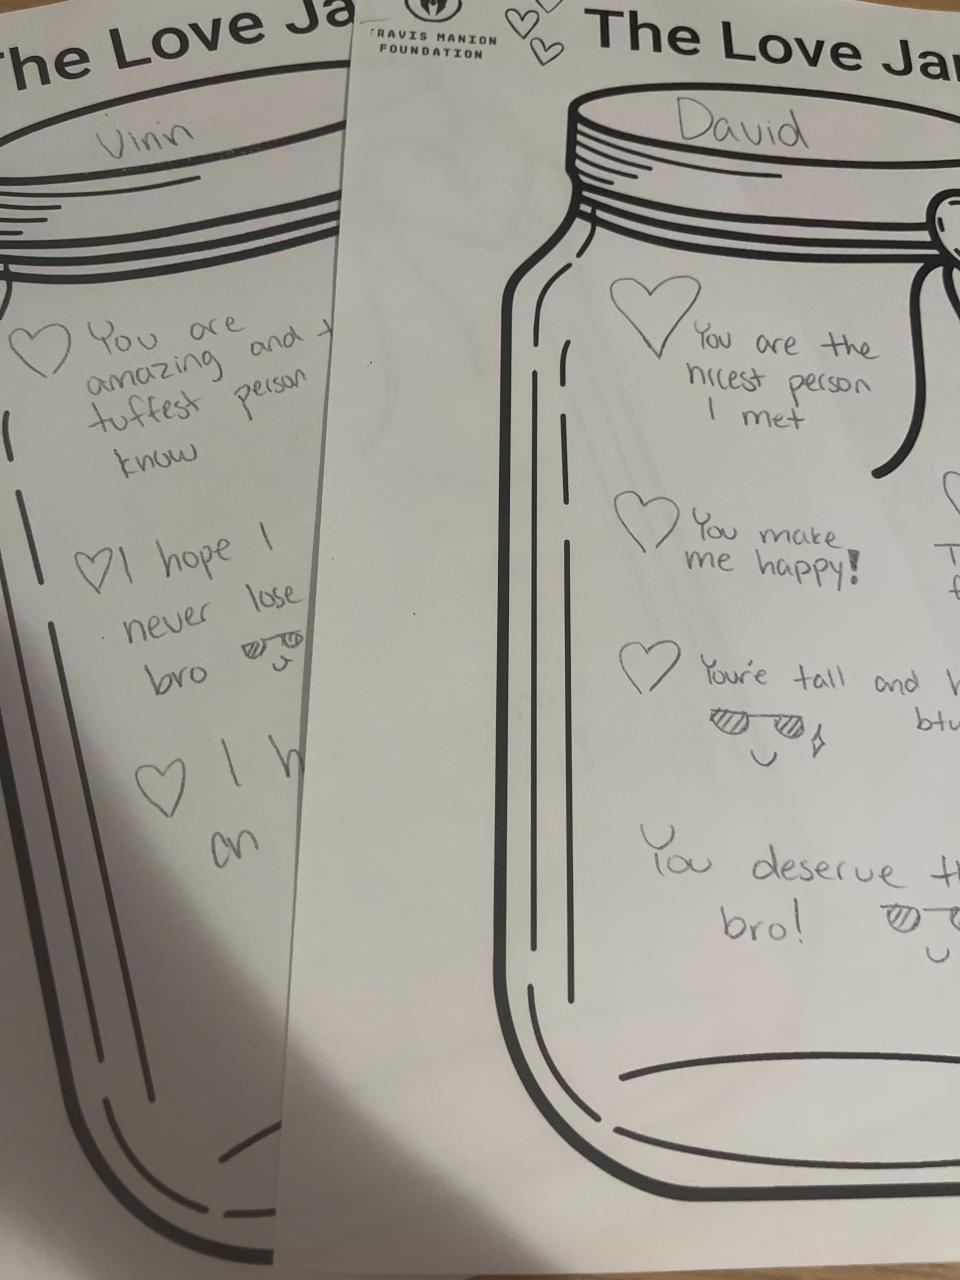 The Love Ja
Vinn
You are
amazing and t
tuffest person
know
I hope I
never lose
bro
I h
an
TRAVIS MANION
FOUNDATION
The Love Jar
David
You are the
nicest person
I met
You make
me happy!
Your'e tall and h
btw
You deserve th
bro!